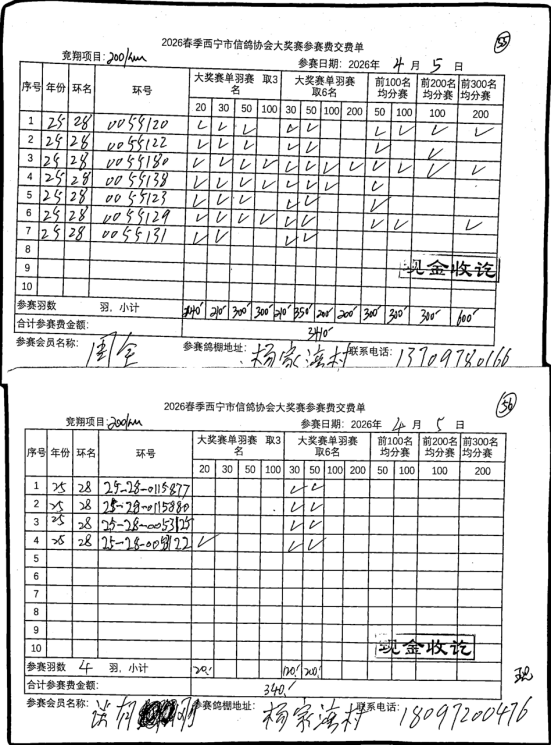 2026春季西宁市信鸽协会大奖赛参赛费交费单 55
竞翔项目: 200/km 参赛日期: 2026年 4 月 5 日
序号 年份 环名 环号 大奖赛单羽赛 取3名 大奖赛单羽赛 取6名 前100名均分赛 前200名均分赛 前300名均分赛
20 30 50 100 30 50 100 200 50 100 100 200
1 25 28 0055120 ✓ ✓ ✓ ✓ ✓ ✓ ✓ ✓ ✓
2 25 28 0055122 ✓ ✓ ✓ ✓ ✓ ✓ ✓
3 25 28 0055180 ✓ ✓ ✓ ✓ ✓ ✓ ✓ ✓ ✓ ✓ ✓ ✓
4 25 28 0055138 ✓ ✓ ✓ ✓ ✓ ✓ ✓ ✓
5 25 28 0055123 ✓ ✓ ✓ ✓ ✓ ✓
6 25 28 0055129 ✓ ✓ ✓ ✓ ✓ ✓ ✓ ✓ ✓
7 25 28 0055131 ✓ ✓ ✓ ✓
8
9 现金收讫
10
参赛羽数 羽、小计 140 210 300 300 210 350 200 200 300 300 300 600
合计参赛费金额: 3410
参赛会员名称: 周全 参赛鸽棚地址: 杨家湾村 联系电话: 13709780166
2026春季西宁市信鸽协会大奖赛参赛费交费单 56
竞翔项目: 200/km 参赛日期: 2026年 4 月 5 日
序号 年份 环名 环号 大奖赛单羽赛 取3名 大奖赛单羽赛 取6名 前100名均分赛 前200名均分赛 前300名均分赛
20 30 50 100 30 50 100 200 50 100 100 200
1 25 28 25-28-0115877 ✓ ✓
2 25 28 25-28-0115880 ✓ ✓
3 25 28 25-28-0053125 ✓ ✓
4 25 28 ✓ ✓ ✓
5
6
7
8
9
10 现金收讫
参赛羽数 4 羽、小计 20 120 200
合计参赛费金额: 340
参赛会员名称: 参赛鸽棚地址: 杨家湾村 联系电话: 18097200476